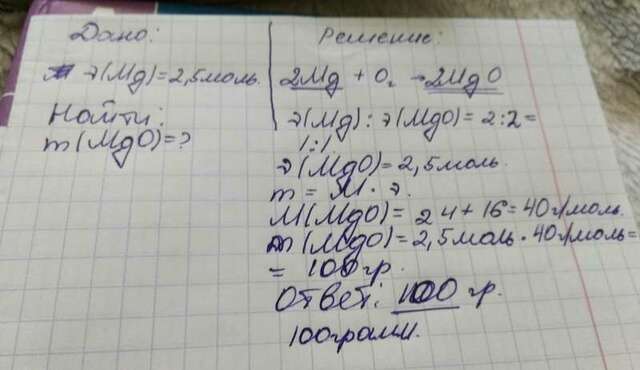 Дано:
ν(Mg)=2,5моль.
Найти:
m(MgO)=?
Решение:
2Mg + O₂ → 2MgO
ν(Mg):ν(MgO)= 2:2=
1:1
ν(MgO)=2,5моль.
m = M · ν.
M(MgO)= 24+16=40г/моль.
m(MgO)=2,5моль·40г/моль=
= 100гр.
Ответ: 100 гр.
100грамм.